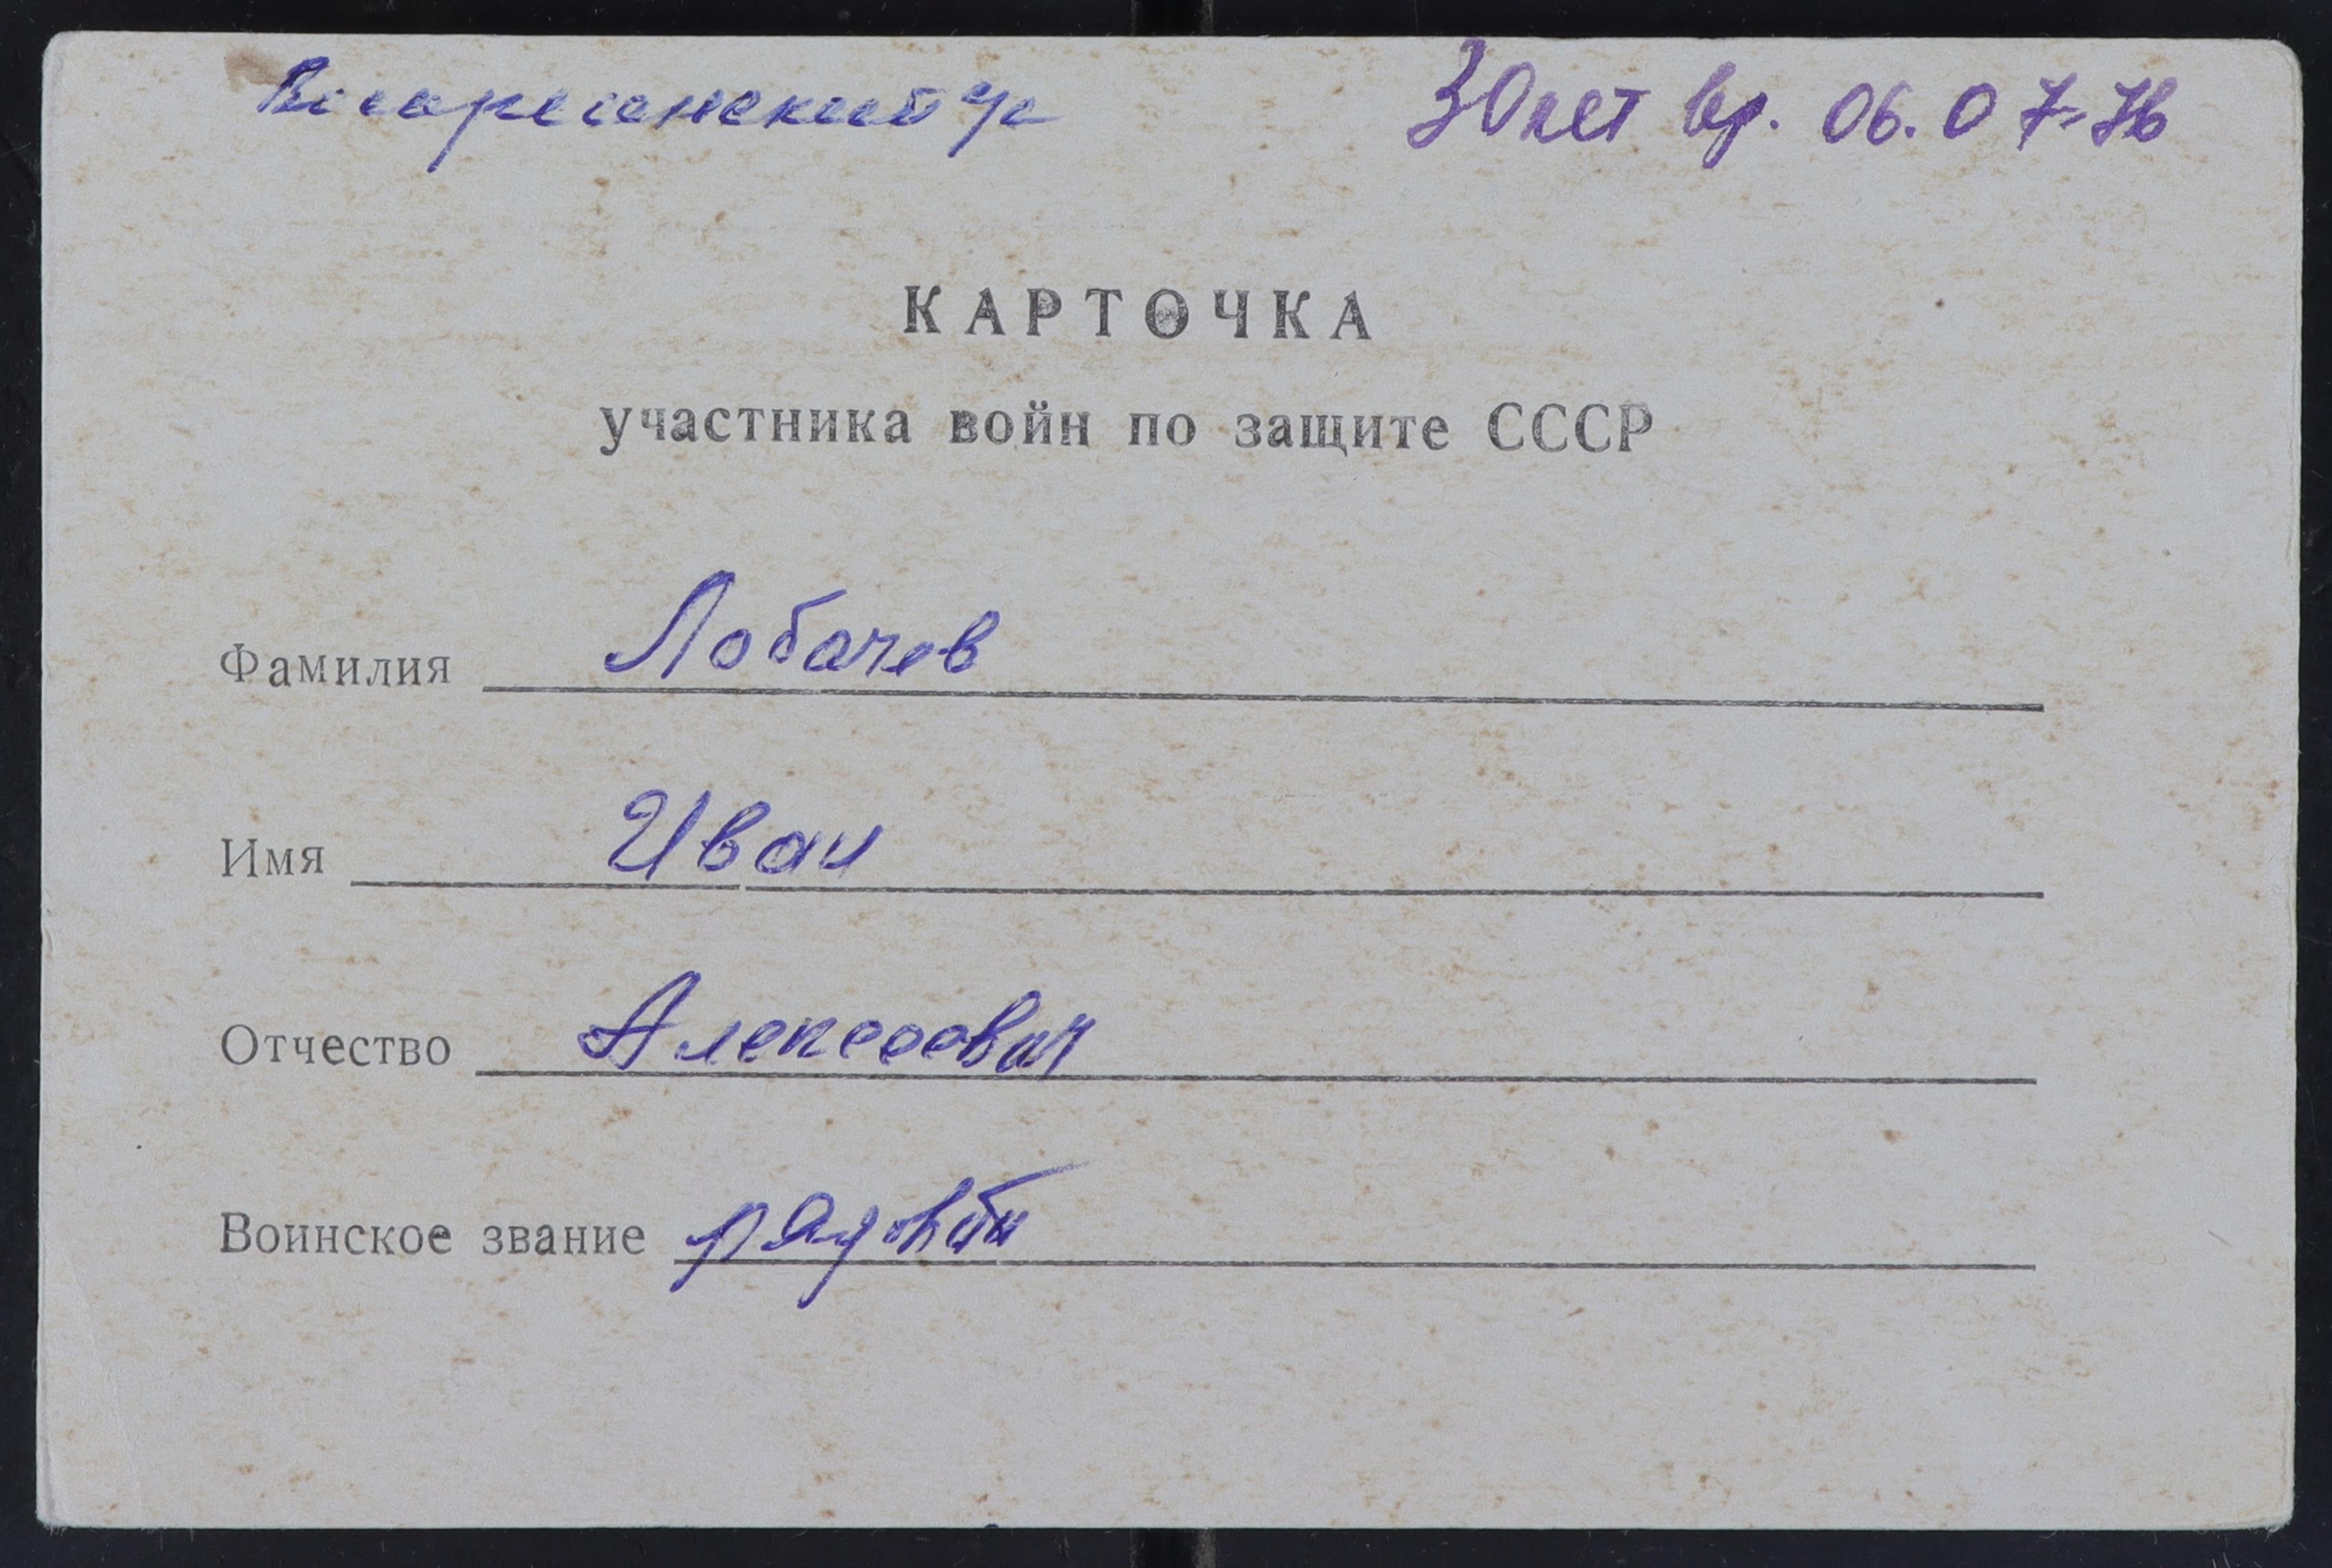 Воскресенский р-н 30 лет вр. 06.07.76
КАРТОЧКА
участника войн по защите СССР
Фамилия Лобачев
Имя Иван
Отчество Алексеевич
Воинское звание рядовой